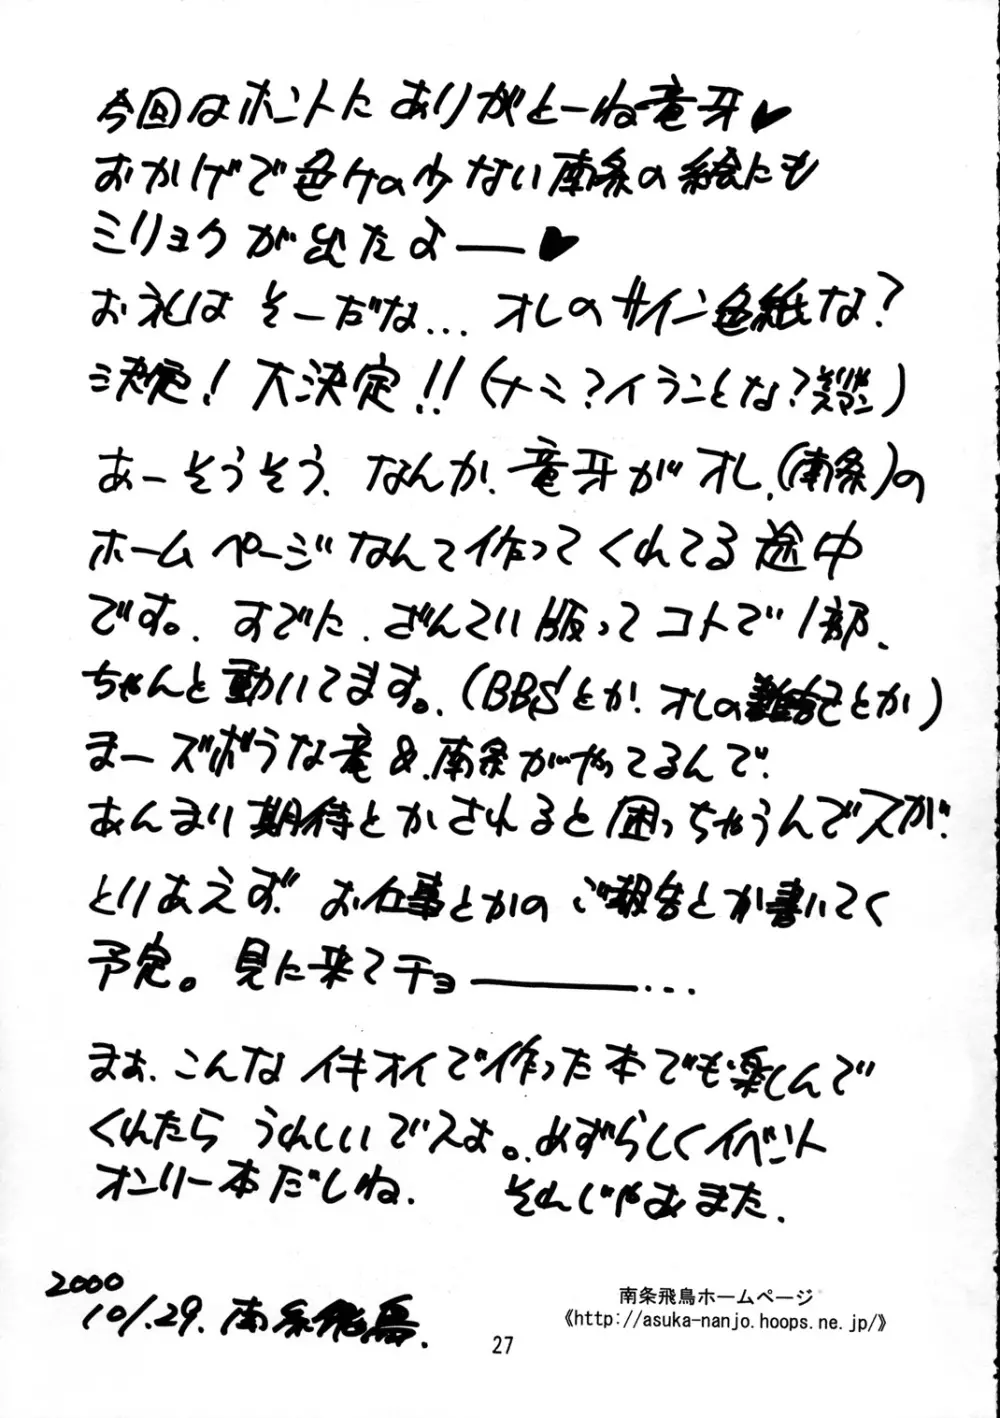 今回はホントに ありがとーね竜牙♥
おかげで色ケの少ない南条の絵にも
ミリョクが出たよー♥
お礼は そーだな... オレのサイン色紙な?
決定! 大決定!!(ナミ?イラことな?
あーそうそう、なんか、竜牙がオレ(南条)の
ホームページなんて作ってくれてる途中
です。すでに、ざんてい版ってコトで1部、
ちゃんと動いてます。(BBSとか、オレの雑記とか)
まーズボラな竜&南条がやってるんで、
あんまり期待とかされると困っちゃうんでスが、
とりあえず、お仕事とかのご報告とか書いてく
予定。見に来てチョー...
まぁ、こんなイキオイで作った本でも楽しんで
くれたら うれしいでスよ。めずらしくイベント
オンリー本だしね。 それじゃぁまた。
2000
10/.29. 南条飛鳥.
南条飛鳥ホームページ
《http://asuka-nanjo.hoops.ne.jp/》
27